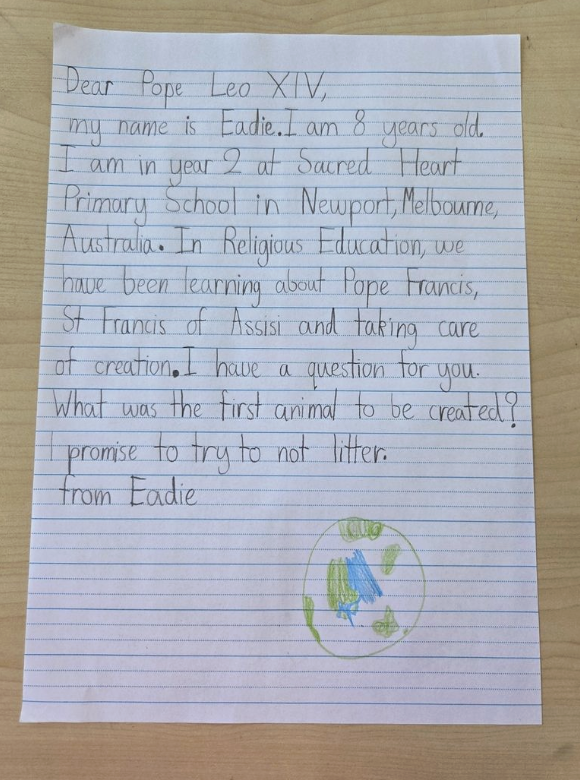 Dear Pope Leo XIV,
my name is Eadie. I am 8 years old.
I am in year 2 at Sacred Heart
Primary School in Newport, Melbourne,
Australia. In Religious Education, we
have been learning about Pope Francis,
St Francis of Assisi and taking care
of creation. I have a question for you.
What was the first animal to be created?
I promise to try to not litter.
from Eadie